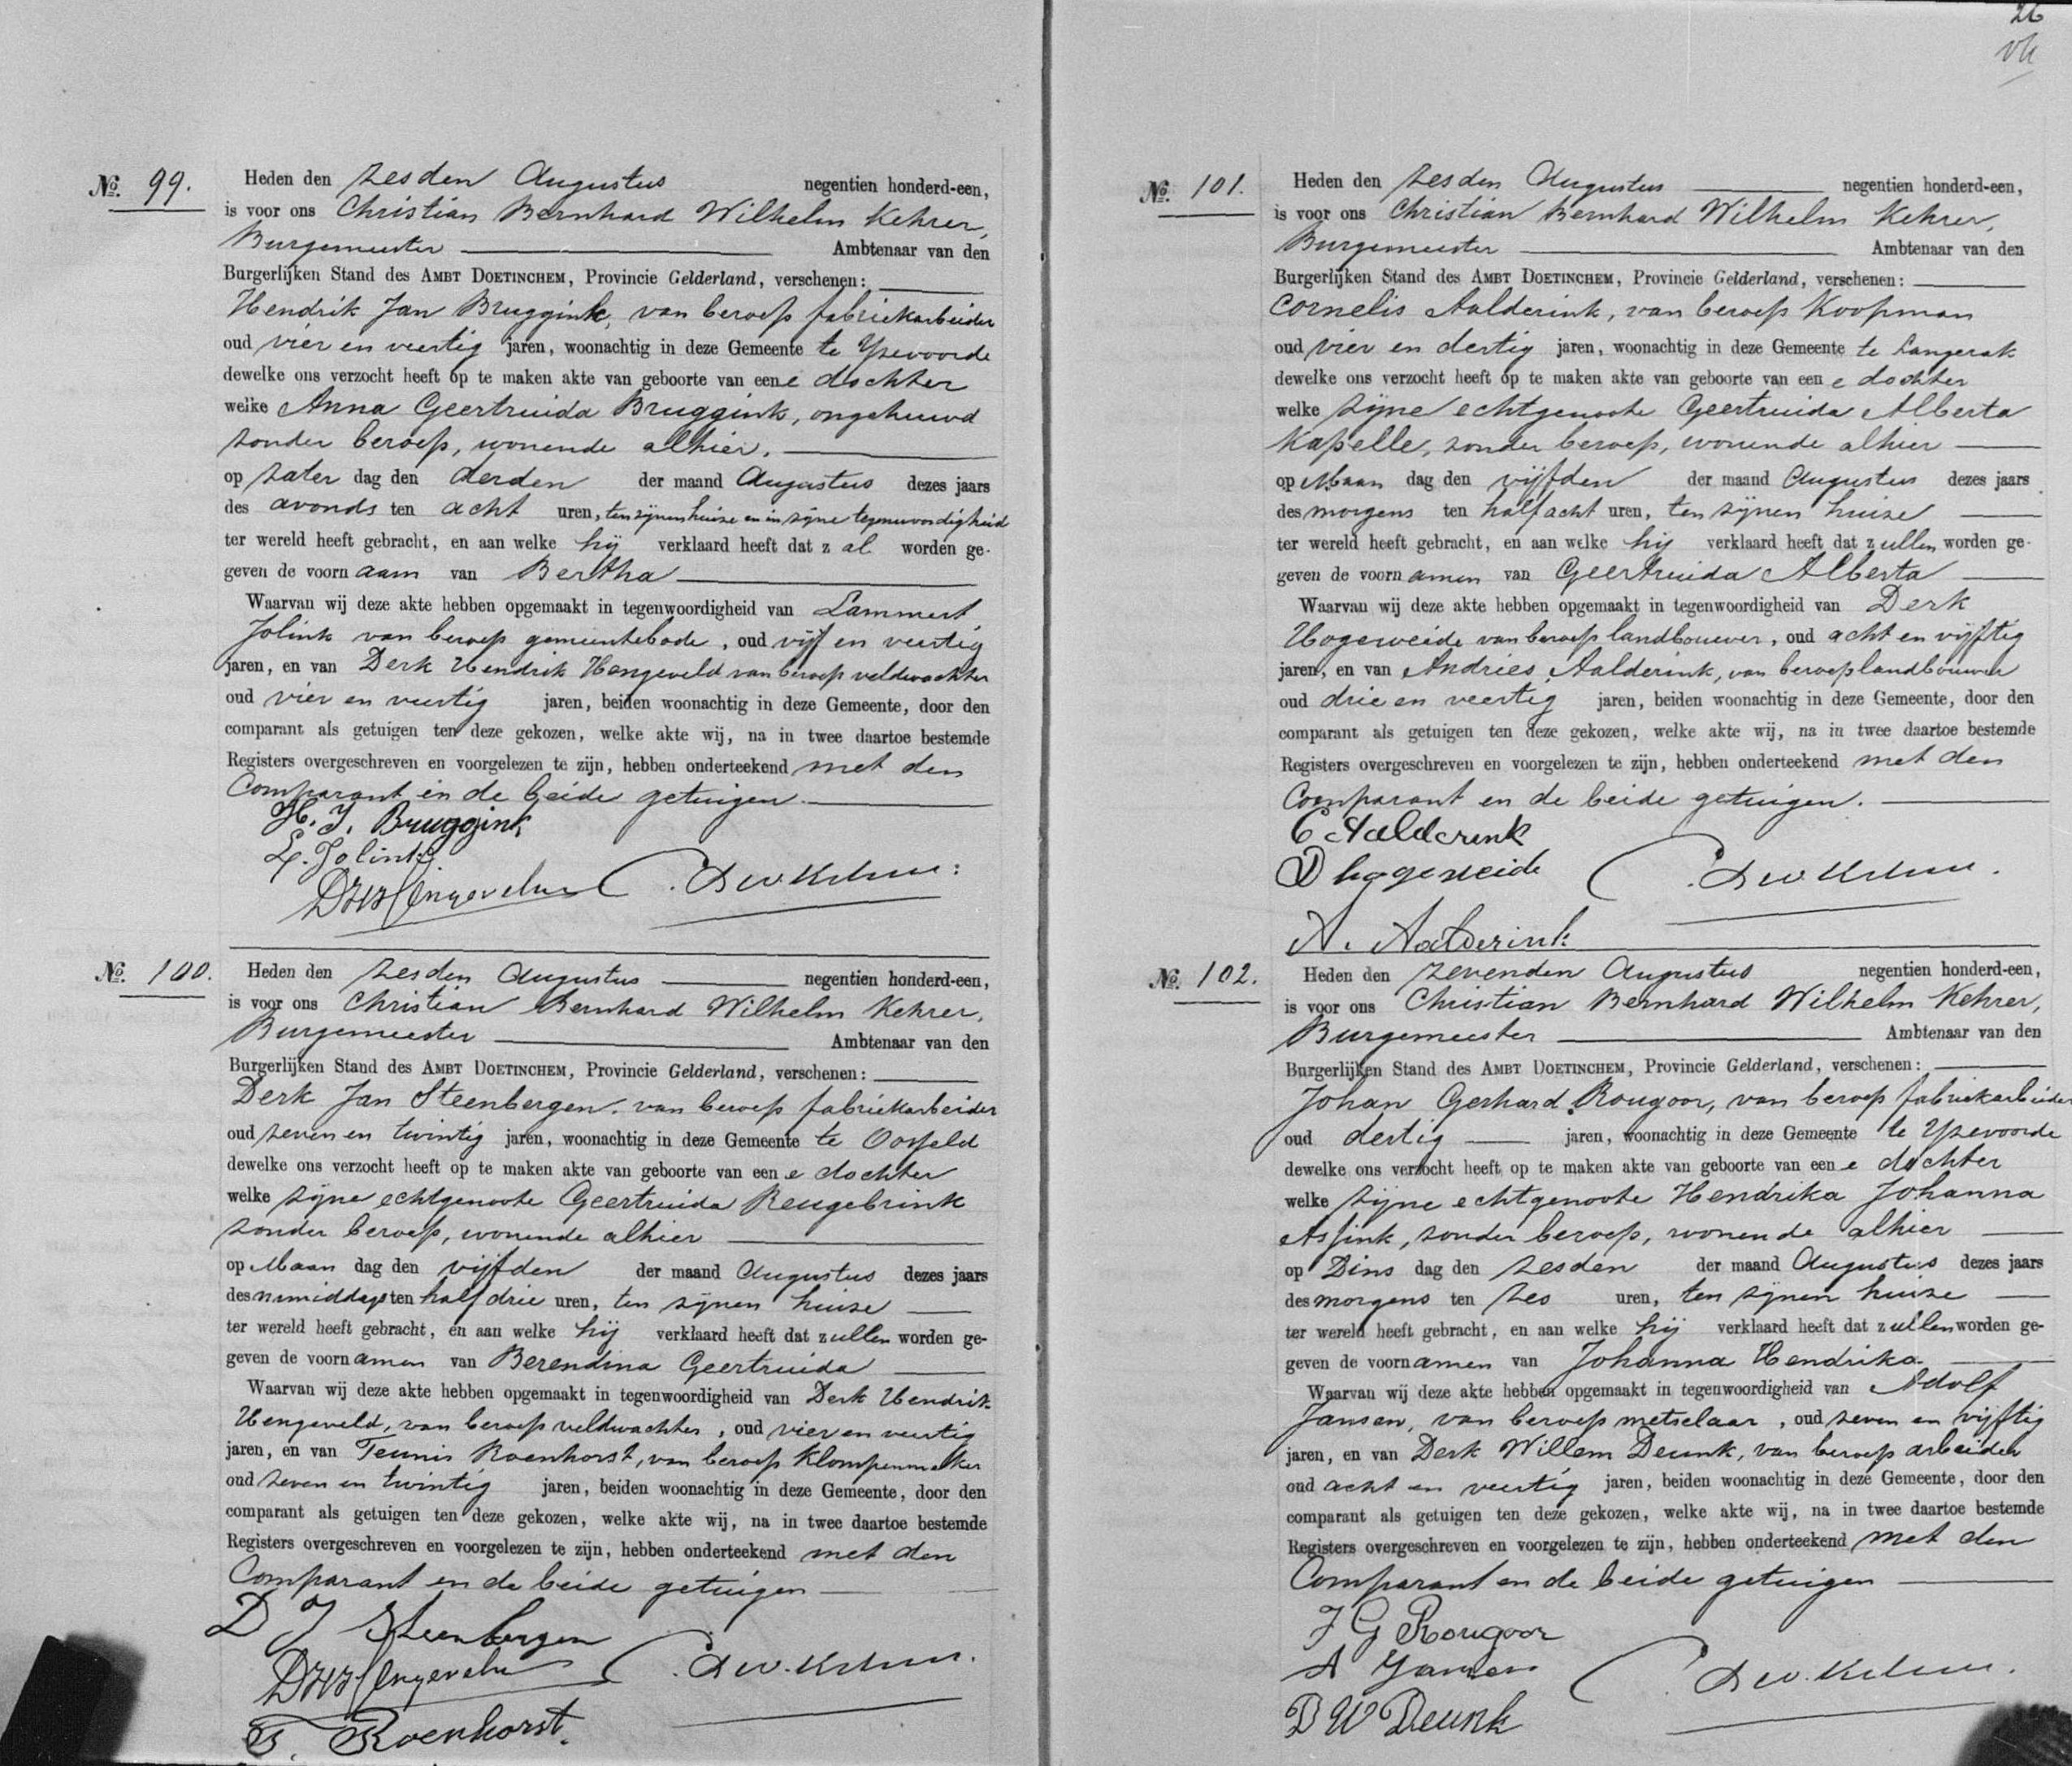 No. 99.
Heden den zesden Augustus negentien honderd-een,
is voor ons Christian Bernhard Wilhelm Kehrer,
Burgemeester Ambtenaar van den
Burgerlijken Stand des AMBT DOETINCHEM, Provincie Gelderland, verschenen:
Hendrik Jan Bruggink, van beroep fabriekarbeider
oud vier en veertig jaren, woonachtig in deze Gemeente te Yzevoorde
dewelke ons verzocht heeft op te maken akte van geboorte van eene dochter
welke Anna Geertruida Bruggink, ongehuwd
zonder beroep, wonende alhier.
op Zater dag den derden der maand Augustus dezes jaars
des avonds ten acht uren, ten zijnen huize en in zijne tegenwoordigheid
ter wereld heeft gebracht, en aan welke hij verklaard heeft dat zal worden ge-
geven de voornaam van Bertha
Waarvan wij deze akte hebben opgemaakt in tegenwoordigheid van Lammert
Jolink van beroep gemeentebode, oud vijf en veertig
jaren, en van Derk Hendrik Hengeveld van beroep veldwachter
oud vier en veertig jaren, beiden woonachtig in deze Gemeente, door den
comparant als getuigen ten deze gekozen, welke akte wij, na in twee daartoe bestemde
Registers overgeschreven en voorgelezen te zijn, hebben onderteekend met den
Comparant en de beide getuigen.
H. J. Bruggink
L. Jolink
DH Hengeveld C. B W Kehrer
No. 100.
Heden den zesden Augustus negentien honderd-een,
is voor ons Christian Bernhard Wilhelm Kehrer,
Burgemeester Ambtenaar van den
Burgerlijken Stand des AMBT DOETINCHEM, Provincie Gelderland, verschenen:
Derk Jan Steenbergen, van beroep fabriekarbeider
oud zeven en twintig jaren, woonachtig in deze Gemeente te Oosseld
dewelke ons verzocht heeft op te maken akte van geboorte van eene dochter
welke zijne echtgenoote Geertruida Reugebrink
zonder beroep, wonende alhier
op Maan dag den vijfden der maand Augustus dezes jaars
des namiddags ten half drie uren, ten zijnen huize
ter wereld heeft gebracht, en aan welke hij verklaard heeft dat zullen worden ge-
geven de voornamen van Berendina Geertruida
Waarvan wij deze akte hebben opgemaakt in tegenwoordigheid van Derk Hendrik
Hengeveld, van beroep veldwachter, oud vier en veertig
jaren, en van Teunis Roenhorst, van beroep klompenmaker
oud zeven en twintig jaren, beiden woonachtig in deze Gemeente, door den
comparant als getuigen ten deze gekozen, welke akte wij, na in twee daartoe bestemde
Registers overgeschreven en voorgelezen te zijn, hebben onderteekend met den
Comparant en de beide getuigen
D J Steenbergen
DH Hengeveld C. B W. Kehrer.
T. Roenhorst.
26
No. 101.
Heden den zesden Augustus negentien honderd-een,
is voor ons Christian Bernhard Wilhelm Kehrer,
Burgemeester Ambtenaar van den
Burgerlijken Stand des AMBT DOETINCHEM, Provincie Gelderland, verschenen:
Cornelis Aalderink, van beroep Koopman
oud vier en dertig jaren, woonachtig in deze Gemeente te Langerak
dewelke ons verzocht heeft op te maken akte van geboorte van eene dochter
welke zijne echtgenoote Geertruida Alberta
Kapelle, zonder beroep, wonende alhier
op Maan dag den vijfden der maand Augustus dezes jaars
des morgens ten half acht uren, ten zijnen huize
ter wereld heeft gebracht, en aan welke hij verklaard heeft dat zullen worden ge-
geven de voornamen van Geertruida Alberta
Waarvan wij deze akte hebben opgemaakt in tegenwoordigheid van Derk
Hogeweide van beroep landbouwer, oud acht en vijftig
jaren, en van Andries Aalderink, van beroep landbouwer
oud drie en veertig jaren, beiden woonachtig in deze Gemeente, door den
comparant als getuigen ten deze gekozen, welke akte wij, na in twee daartoe bestemde
Registers overgeschreven en voorgelezen te zijn, hebben onderteekend met den
Comparant en de beide getuigen.
C Aalderink
D hogeweide C. B W Kehrer.
A. Aalderink
No. 102.
Heden den zevenden Augustus negentien honderd-een,
is voor ons Christian Bernhard Wilhelm Kehrer,
Burgemeester Ambtenaar van den
Burgerlijken Stand des AMBT DOETINCHEM, Provincie Gelderland, verschenen:
Johan Gerhard Rougoor, van beroep fabriekarbeider
oud dertig jaren, woonachtig in deze Gemeente te Yzevoorde
dewelke ons verzocht heeft op te maken akte van geboorte van eene dochter
welke zijne echtgenoote Hendrika Johanna
Assink, zonder beroep, wonende alhier
op Dins dag den zesden der maand Augustus dezes jaars
des morgens ten zes uren, ten zijnen huize
ter wereld heeft gebracht, en aan welke hij verklaard heeft dat zullen worden ge-
geven de voornamen van Johanna Hendrika
Waarvan wij deze akte hebben opgemaakt in tegenwoordigheid van Adolf
Jansen, van beroep metselaar, oud zeven en vijftig
jaren, en van Derk Willem Deunk, van beroep arbeider
oud acht en veertig jaren, beiden woonachtig in deze Gemeente, door den
comparant als getuigen ten deze gekozen, welke akte wij, na in twee daartoe bestemde
Registers overgeschreven en voorgelezen te zijn, hebben onderteekend met den
Comparant en de beide getuigen
J G Rougoor
A Jansen C. B W. Kehrer.
D W Deunk